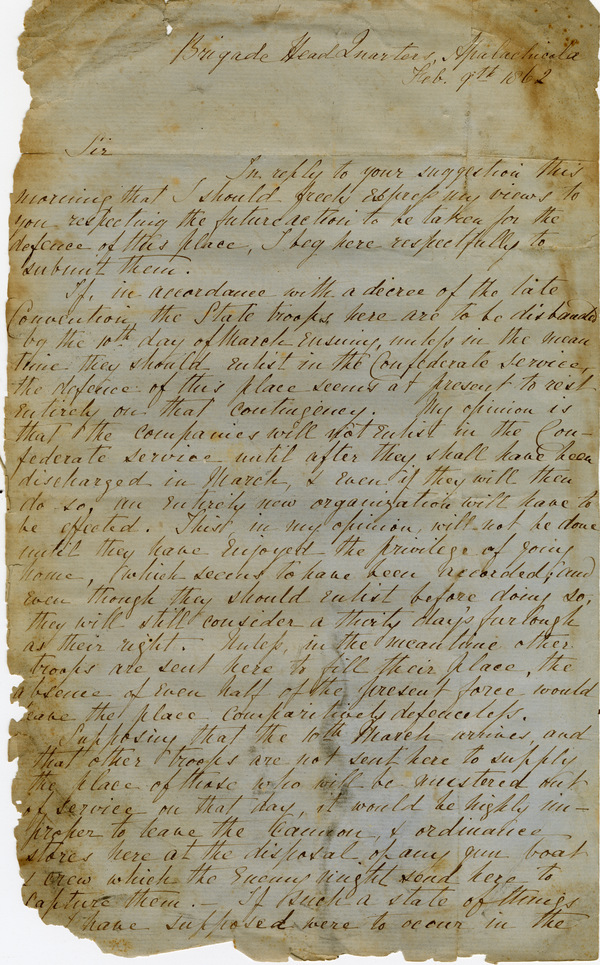 Brigade Head Quarters, Apalachicola
Feb. 9th 1862
Sir
In reply to your suggestion this
morning that I should freely express my views to
you respecting the future action to be taken for the
defence of this place, I beg here respectfully to
submit them.
If, in accordance with a decree of the late
Convention, the State troops here are to be disbanded
by the 10th day of March ensuing, unless in the mean
time they should enlist in the Confederate service,
the defence of this place seems at present to rest
entirely on that contingency. My opinion is
that the companies will not enlist in the Con-
federate service until after they shall have been
discharged in March, & even if they will then
do so, an entirely new organization will have to
be effected. This in my opinion, will not be done
until they have enjoyed the privilege of going
home, (which seems to have been accorded) and
even though they should enlist before doing so,
they will still consider a thirty day's furlough
as their right. Unless, in the meantime other
troops are sent here to fill their place, the
absence of even half of the present force would
leave the place comparitively defenceless.
Supposing that the 10th March arrives, and
that other troops are not sent here to supply
the place of those who will be mustered out
of service on that day, it would be highly im-
proper to leave the Cannon, & ordinance
stores here at the disposal of any gun boat
& crew which the Enemy might send here to
capture them. - If such a state of things
I have supposed were to occur in the